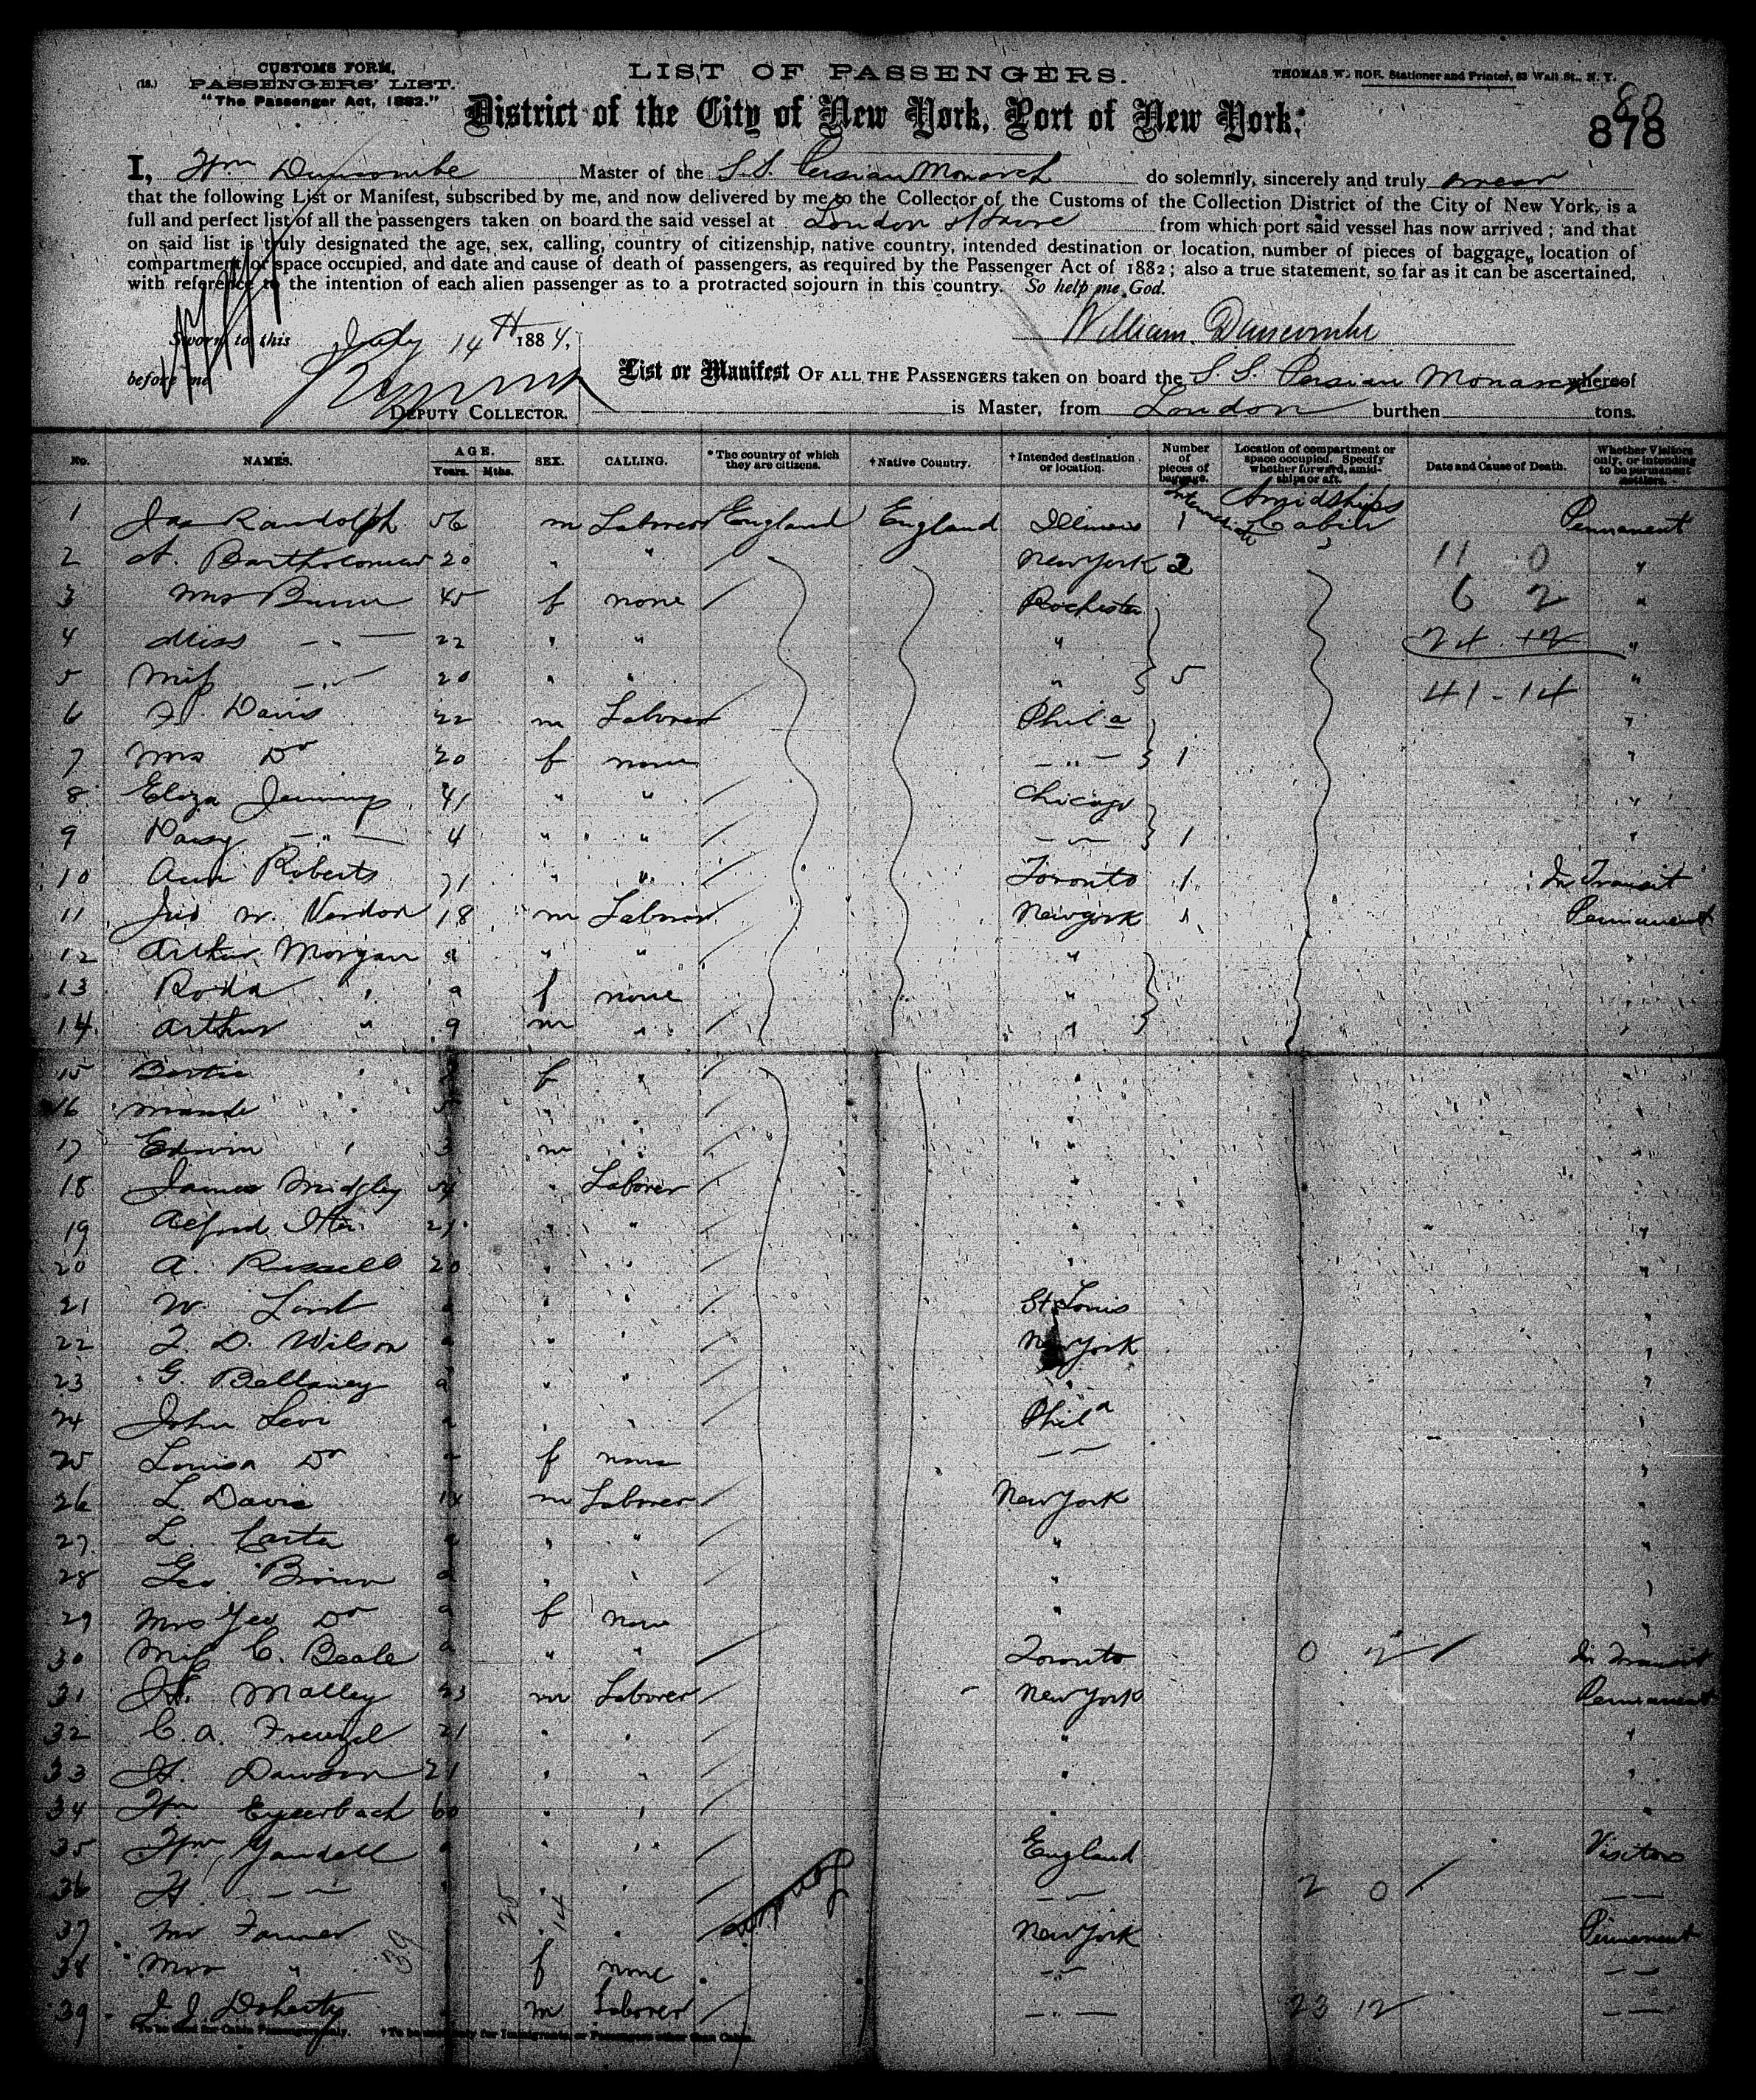 CUSTOMS FORM,
(18.) PASSENGERS' LIST.
"The Passenger Act, 1882."
LIST OF PASSENGERS.
THOMAS W. ROE, Stationer and Printer, 63 Wall St., N. Y.
District of the City of New York, Port of New York:
80
878
I, Wm Duncombe Master of the S.S. Persian Monarch do solemnly, sincerely and truly swear
that the following List or Manifest, subscribed by me, and now delivered by me to the Collector of the Customs of the Collection District of the City of New York, is a
full and perfect list of all the passengers taken on board the said vessel at London & Havre from which port said vessel has now arrived; and that
on said list is truly designated the age, sex, calling, country of citizenship, native country, intended destination or location, number of pieces of baggage, location of
compartment or space occupied, and date and cause of death of passengers, as required by the Passenger Act of 1882; also a true statement, so far as it can be ascertained,
with reference to the intention of each alien passenger as to a protracted sojourn in this country. So help me God.
Sworn to this July 14th 1884, William Duncombe
before me
DEPUTY COLLECTOR.
List or Manifest OF ALL THE PASSENGERS taken on board the S. S. Persian Monarch whereof
is Master, from London burthen tons.
No. NAMES. AGE. Years. Mths. SEX. CALLING. *The country of which they are citizens. †Native Country. †Intended destination or location. Number of pieces of baggage. Location of compartment or space occupied. Specify whether forward, amidships or aft. Date and Cause of Death. Whether Visitors only, or intending to be permanent settlers.
1 Jas Randolph 56 m Laborer England England Illinois 1 Intermediate Amidships Cabin Permanent
2 A. Bartholomew 20 " " New York 2 11 0 "
3 Mrs 45 f none Rochester 6 2 "
4 Miss — " — 22 " " " 24 12 "
5 Miss — " — 20 " " " 5 41-14 "
6 Davis 22 m Laborer Phila "
7 Mrs Do 20 f none — " — 1 "
8 Eliza Jennings 41 " " Chicago "
9 Daisy — " — 4 " " — " — 1 "
10 Ann Roberts 71 " " Toronto 1 In Transit
11 Jno W. 18 m Laborer New York 1 Permanent
12 Arthur Morgan a " " " "
13 Roda " a f none " "
14 Arthur " 9 m " " "
15 Bertie " f " " "
16 Maude " 5 " " " "
17 Edwin " 3 m " " "
18 James Midgley " Laborer " "
19 Alfred 21 " " " "
20 A. Russell 20 " " " "
21 W. Lord a " " St Louis "
22 D. Wilson a " " New York "
23 G. Bellamy a " " " "
24 John Levi a " " Phila "
25 Louisa Do a f none — " — "
26 L. Davis 14 m Laborer New York "
27 L. Carter a " " " "
28 Geo. Brown a " " " "
29 Mrs Geo Do a f none " "
30 Miss C. Beale a " " Toronto 0 2 In Transit
31 H. Malley 23 m Laborer New York Permanent
32 C. A. 21 " " " "
33 H. Dawson 21 " " " "
34 Wm 60 " " " "
35 Wm Yandell a " " England Visitors
36 H. — " — " " " — " — 2 0 — " —
37 Mr Farmer " " New York Permanent
38 Mrs " f none — " — — " —
39 J. J. Doherty m Laborer — " — 23 12 — " —
39 25 14
*To be used for Cabin Passengers only. †To be used only for Immigrants, or Passengers other than Cabin.